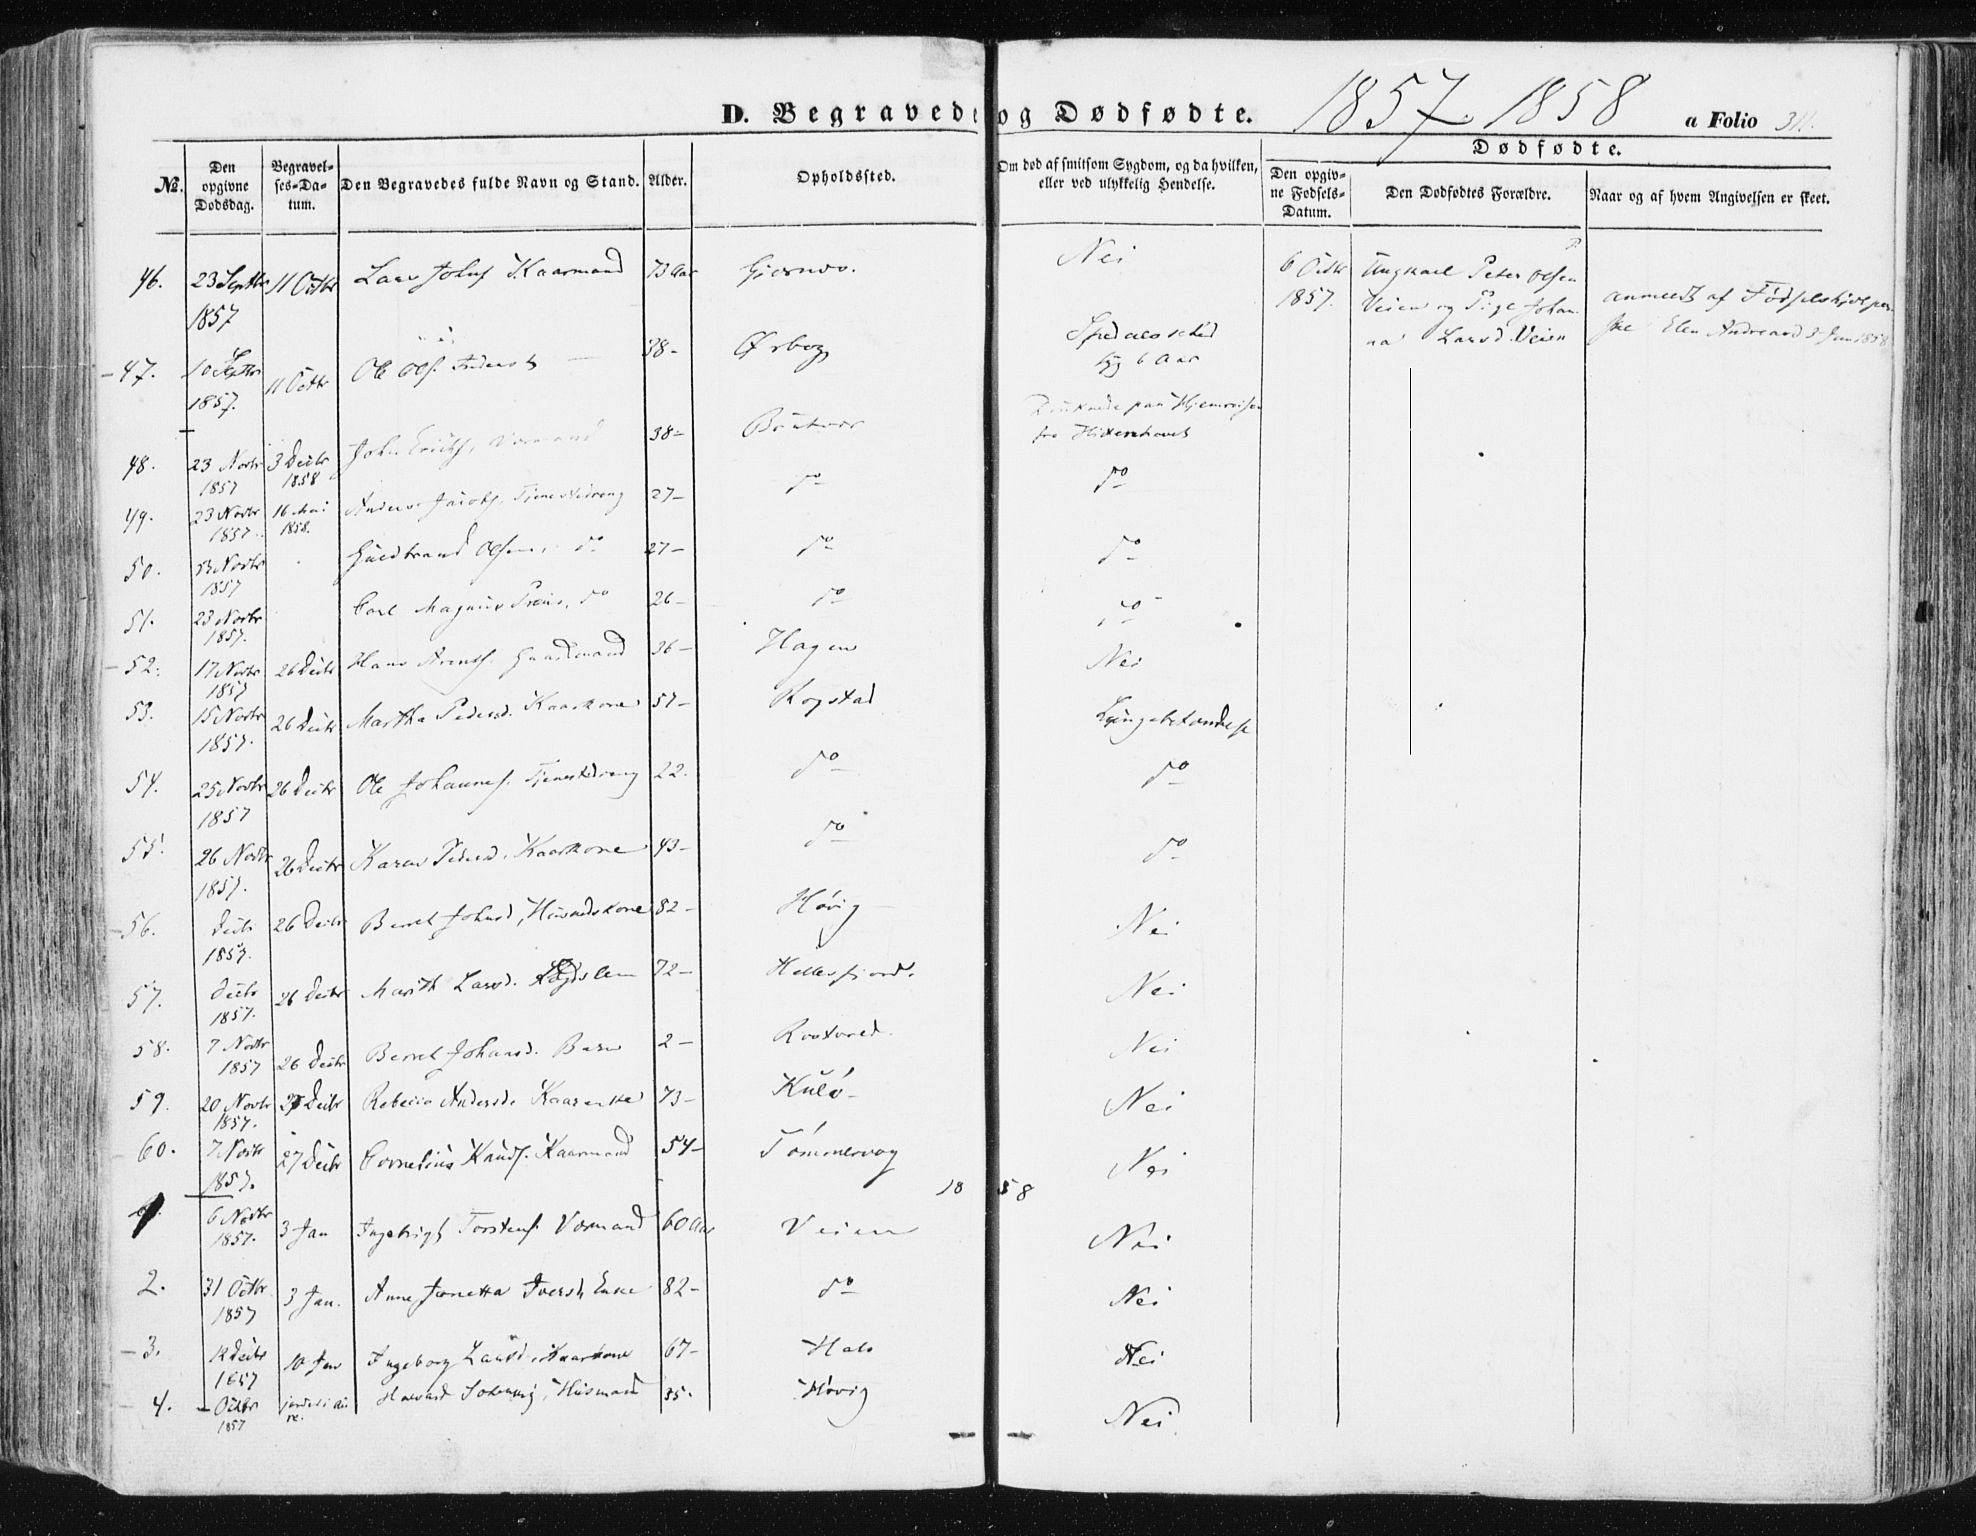 D. Begravede og Dødfødte. 1857. 1858 a Folio 311.
Dødfødte.
No. Den opgivne Dødsdag. Begravelses-Datum. Den Begravedes fulde Navn og Stand. Alder. Opholdssted. Om død af smitsom Sygdom, og da hvilken, eller ved ulykkelig Hendelse. Den opgivne Fødsels-Datum. Den Dødfødtes Forældre. Naar og af hvem Angivelsen er skeet.
46. 23 Septbr 1857 11 Octbr Lars Johns. Kaarmand 73 Aar Nei
6 Octbr 1857. Ungkarl Peter Olsen Veien og Pige Johanna Larsd. Veien
anmeldt af Elen 3 Jan 1858
47. 10 Septbr 1857. 11 Octbr Ole Ols. 38- Ørbog Spedalsched syg 6 Aar
48. 23 Novbr 1857 3 Decbr 1858 John Ericks. 38- paa Hjemreisen fra
49. 23 Novbr 1857. 16 Mai 1858. Anders Jacobs. Tjenestedreng 27- do do
50. 23 Novbr 1857 Guldbrand Olsen, do 27- do do
51. 23 Novbr 1857. Carl Magnus do 26- do do
52. 17 Novbr 1857 26 Decbr Hans Arents. Gaardmand 36- Hagen Nei
53. 15 Novbr 1857. 26 Decbr Martha Pedersd. Kaarkone 57- Rogstad Lungebetændelse
54. 25 Novbr 1857 26 Decbr Ole Johannes. Tjenestedreng 22. do do
55. 26 Novbr 1857. 26 Decbr Karen Pedersd. Kaarkone 43- do do
56. Decbr 1857. 26 Decbr Beret Johnsd, Huusmdskone 82- Høvig Nei
57. Decbr 1857. 26 Decbr Marith Larsd. Lægdslem 72- Hellesfjord. Nei
58. 7 Novbr 1857 26 Decbr Beret Johansd. Barn 2- Nei
59. 20 Novbr 1857. 27 Decbr Rebecca Andersd. Kaarenke 73- Kulø- Nei
60. 7 Novbr 1857. 27 Decbr Cornelius Knuds. Kaarmand 54- Tømmervog Nei
1858
6 Novbr 1857. 3 Jan Ingebrigt Torstens. 60 Aar Veien Nei
2. 31 Octbr 1857 3 Jan. Anne Jonetta Iversd. Enke 82- do Nei
3. 12 Decbr 1857 10 Jan Ingeborg Larsd. Kaarkone 67- Hals Nei
4. - Octbr 1857 Husmand 35. Høvig Nei.